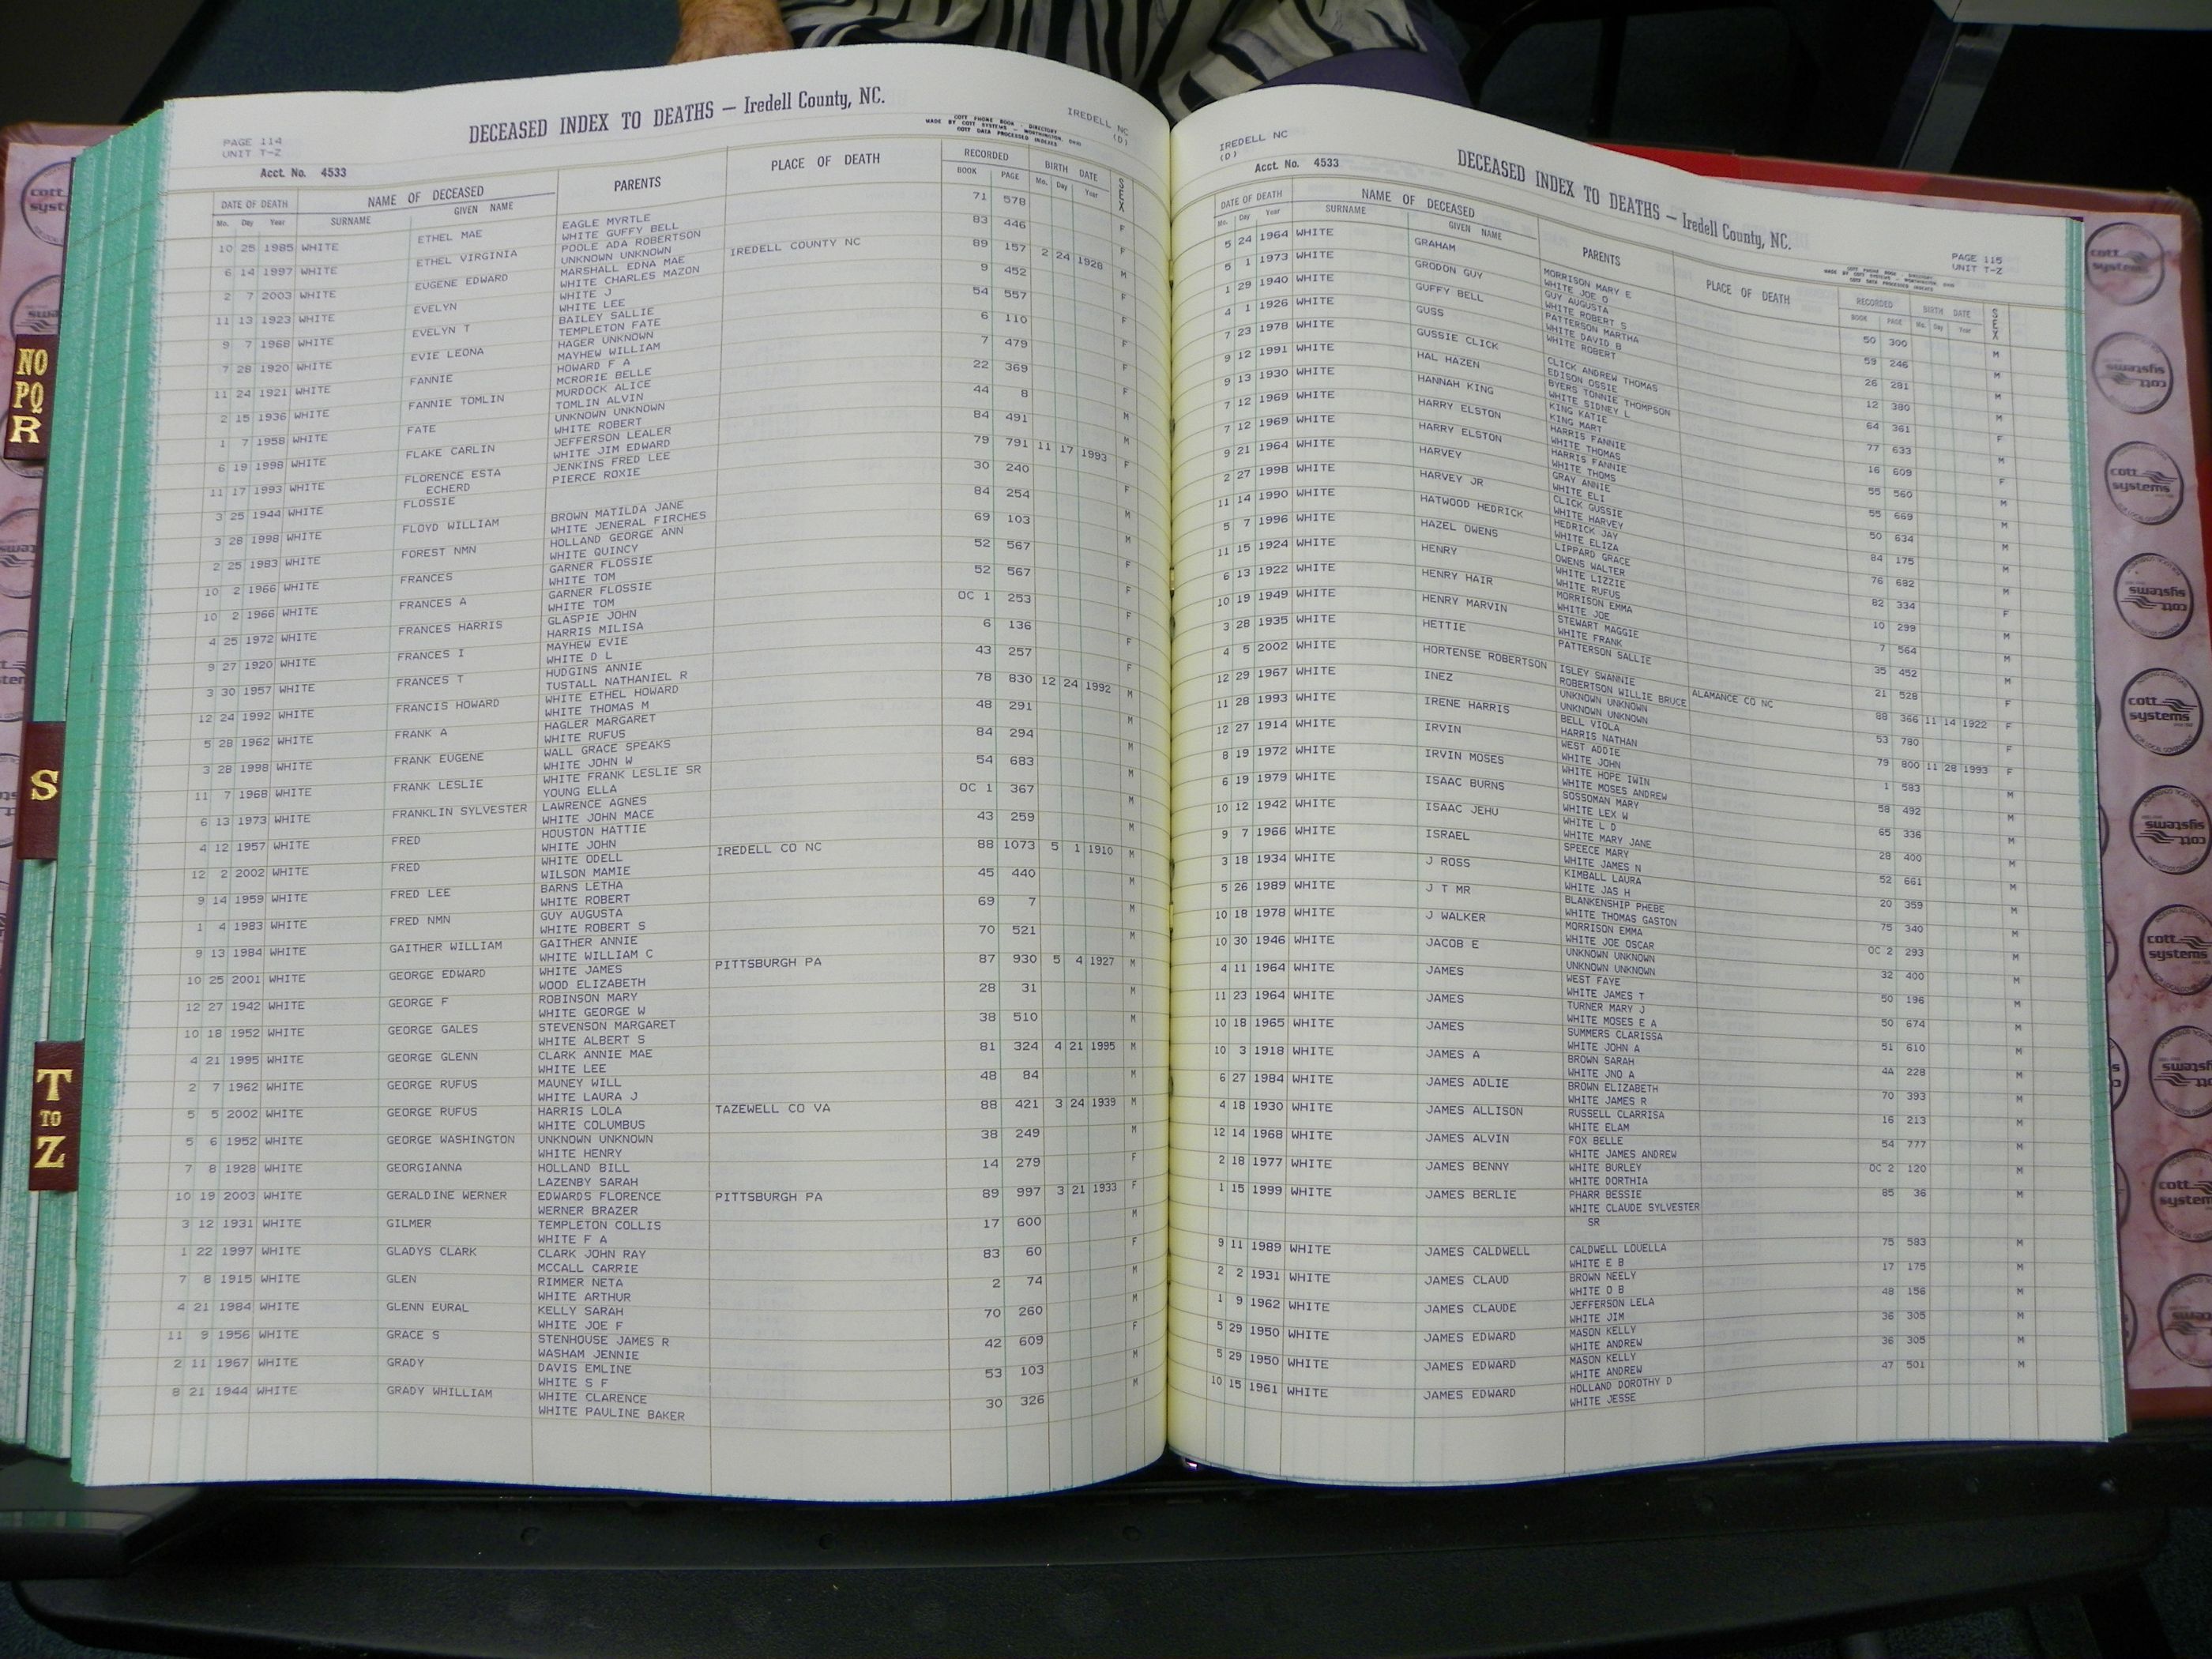 PAGE 114
UNIT T-Z
DECEASED INDEX TO DEATHS — Iredell County, NC.
IREDELL NC
(D)
COTT PHONE BOOK - DIRECTORY
MADE BY COTT SYSTEMS - WORTHINGTON, OHIO
COTT DATA PROCESSED INDEXES
Acct. No. 4533
DATE OF DEATH NAME OF DECEASED PARENTS PLACE OF DEATH RECORDED BIRTH DATE SEX
Mo. Day Year SURNAME GIVEN NAME BOOK PAGE Mo. Day Year
10 25 1985 WHITE ETHEL MAE EAGLE MYRTLE 71 578 F
WHITE GUFFY BELL
6 14 1997 WHITE ETHEL VIRGINIA POOLE ADA ROBERTSON 83 446 F
UNKNOWN UNKNOWN
2 7 2003 WHITE EUGENE EDWARD MARSHALL EDNA MAE IREDELL COUNTY NC 89 157 2 24 1928 M
WHITE CHARLES MAZON
11 13 1923 WHITE EVELYN WHITE J 9 452 F
WHITE LEE
9 7 1968 WHITE EVELYN T BAILEY SALLIE 54 557 F
TEMPLETON FATE
7 28 1920 WHITE EVIE LEONA HAGER UNKNOWN 6 110 F
MAYHEW WILLIAM
11 24 1921 WHITE FANNIE HOWARD F A 7 479 F
MCRORIE BELLE
2 15 1936 WHITE FANNIE TOMLIN MURDOCK ALICE 22 369 F
TOMLIN ALVIN
1 7 1958 WHITE FATE UNKNOWN UNKNOWN 44 8 M
WHITE ROBERT
6 19 1998 WHITE FLAKE CARLIN JEFFERSON LEALER 84 491 M
WHITE JIM EDWARD
11 17 1993 WHITE FLORENCE ESTA JENKINS FRED LEE 79 791 11 17 1993 F
ECHERD PIERCE ROXIE
3 25 1944 WHITE FLOSSIE 30 240 F
3 28 1998 WHITE FLOYD WILLIAM BROWN MATILDA JANE 84 254 M
WHITE JENERAL FIRCHES
2 25 1983 WHITE FOREST NMN HOLLAND GEORGE ANN 69 103 M
WHITE QUINCY
10 2 1966 WHITE FRANCES GARNER FLOSSIE 52 567 F
WHITE TOM
10 2 1966 WHITE FRANCES A GARNER FLOSSIE 52 567 F
WHITE TOM
4 25 1972 WHITE FRANCES HARRIS GLASPIE JOHN OC 1 253 F
HARRIS MILISA
9 27 1920 WHITE FRANCES I MAYHEW EVIE 6 136 F
WHITE D L
3 30 1957 WHITE FRANCES T HUDGINS ANNIE 43 257 F
TUSTALL NATHANIEL R
12 24 1992 WHITE FRANCIS HOWARD WHITE ETHEL HOWARD 78 830 12 24 1992 M
WHITE THOMAS M
5 28 1962 WHITE FRANK A HAGLER MARGARET 48 291 M
WHITE RUFUS
3 28 1998 WHITE FRANK EUGENE WALL GRACE SPEAKS 84 294 M
WHITE JOHN W
11 7 1968 WHITE FRANK LESLIE WHITE FRANK LESLIE SR 54 683 M
YOUNG ELLA
6 13 1973 WHITE FRANKLIN SYLVESTER LAWRENCE AGNES OC 1 367 M
WHITE JOHN MACE
4 12 1957 WHITE FRED HOUSTON HATTIE 43 259 M
WHITE JOHN
12 2 2002 WHITE FRED WHITE ODELL IREDELL CO NC 88 1073 5 1 1910 M
WILSON MAMIE
9 14 1959 WHITE FRED LEE BARNS LETHA 45 440 M
WHITE ROBERT
1 4 1983 WHITE FRED NMN GUY AUGUSTA 69 7 M
WHITE ROBERT S
9 13 1984 WHITE GAITHER WILLIAM GAITHER ANNIE 70 521 M
WHITE WILLIAM C
10 25 2001 WHITE GEORGE EDWARD WHITE JAMES PITTSBURGH PA 87 930 5 4 1927 M
WOOD ELIZABETH
12 27 1942 WHITE GEORGE F ROBINSON MARY 28 31 M
WHITE GEORGE W
10 18 1952 WHITE GEORGE GALES STEVENSON MARGARET 38 510 M
WHITE ALBERT S
4 21 1995 WHITE GEORGE GLENN CLARK ANNIE MAE 81 324 4 21 1995 M
WHITE LEE
2 7 1962 WHITE GEORGE RUFUS MAUNEY WILL 48 84 M
WHITE LAURA J
5 5 2002 WHITE GEORGE RUFUS HARRIS LOLA TAZEWELL CO VA 88 421 3 24 1939 M
WHITE COLUMBUS
5 6 1952 WHITE GEORGE WASHINGTON UNKNOWN UNKNOWN 38 249 M
WHITE HENRY
7 8 1928 WHITE GEORGIANNA HOLLAND BILL 14 279 F
LAZENBY SARAH
10 19 2003 WHITE GERALDINE WERNER EDWARDS FLORENCE PITTSBURGH PA 89 997 3 21 1933 F
WERNER BRAZER
3 12 1931 WHITE GILMER TEMPLETON COLLIS 17 600 M
WHITE F A
1 22 1997 WHITE GLADYS CLARK CLARK JOHN RAY 83 60 F
MCCALL CARRIE
7 8 1915 WHITE GLEN RIMMER NETA 2 74 M
WHITE ARTHUR
4 21 1984 WHITE GLENN EURAL KELLY SARAH 70 260 M
WHITE JOE F
11 9 1956 WHITE GRACE S STENHOUSE JAMES R 42 609 F
WASHAM JENNIE
2 11 1967 WHITE GRADY DAVIS EMLINE 53 103 M
WHITE S F
8 21 1944 WHITE GRADY WHILLIAM WHITE CLARENCE 30 326 M
WHITE PAULINE BAKER
IREDELL NC
(D)
DECEASED INDEX TO DEATHS — Iredell County, NC.
PAGE 115
UNIT T-Z
COTT PHONE BOOK - DIRECTORY
MADE BY COTT SYSTEMS - WORTHINGTON, OHIO
COTT DATA PROCESSED INDEXES
Acct. No. 4533
DATE OF DEATH NAME OF DECEASED PARENTS PLACE OF DEATH RECORDED BIRTH DATE SEX
Mo. Day Year SURNAME GIVEN NAME BOOK PAGE Mo. Day Year
5 24 1964 WHITE GRAHAM MORRISON MARY E 50 300 M
WHITE JOE O
5 1 1973 WHITE GRODON GUY GUY AUGUSTA 59 246 M
WHITE ROBERT S
1 29 1940 WHITE GUFFY BELL PATTERSON MARTHA 26 281 M
WHITE DAVID B
4 1 1926 WHITE GUSS WHITE ROBERT 12 380 M
7 23 1978 WHITE GUSSIE CLICK CLICK ANDREW THOMAS 64 361 F
EDISON OSSIE
9 12 1991 WHITE HAL HAZEN BYERS TONNIE THOMPSON 77 633 M
WHITE SIDNEY L
9 13 1930 WHITE HANNAH KING KING KATIE 16 609 F
KING MART
7 12 1969 WHITE HARRY ELSTON HARRIS FANNIE 55 560 M
WHITE THOMAS
7 12 1969 WHITE HARRY ELSTON HARRIS FANNIE 55 669 M
WHITE THOMS
9 21 1964 WHITE HARVEY GRAY ANNIE 50 634 M
WHITE ELI
2 27 1998 WHITE HARVEY JR CLICK GUSSIE 84 175 M
WHITE HARVEY
11 14 1990 WHITE HATWOOD HEDRICK HEDRICK JAY 76 682 M
WHITE ELIZA
5 7 1996 WHITE HAZEL OWENS LIPPARD GRACE 82 334 F
OWENS WALTER
11 15 1924 WHITE HENRY WHITE LIZZIE 10 299 M
WHITE RUFUS
6 13 1922 WHITE HENRY HAIR MORRISON EMMA 7 564 M
WHITE JOE
10 19 1949 WHITE HENRY MARVIN STEWART MAGGIE 35 452 M
WHITE FRANK
3 28 1935 WHITE HETTIE PATTERSON SALLIE 21 528 F
4 5 2002 WHITE HORTENSE ROBERTSON ISLEY SWANNIE ALAMANCE CO NC 88 366 11 14 1922 F
ROBERTSON WILLIE BRUCE
12 29 1967 WHITE INEZ UNKNOWN UNKNOWN 53 780 F
UNKNOWN UNKNOWN
11 28 1993 WHITE IRENE HARRIS BELL VIOLA 79 800 11 28 1993 F
HARRIS NATHAN
12 27 1914 WHITE IRVIN WEST ADDIE 1 583 M
WHITE JOHN
8 19 1972 WHITE IRVIN MOSES WHITE HOPE IWIN 58 492 M
WHITE MOSES ANDREW
6 19 1979 WHITE ISAAC BURNS SOSSOMAN MARY 65 336 M
WHITE LEX W
10 12 1942 WHITE ISAAC JEHU WHITE L D 28 400 M
WHITE MARY JANE
9 7 1966 WHITE ISRAEL SPEECE MARY 52 661 M
WHITE JAMES N
3 18 1934 WHITE J ROSS KIMBALL LAURA 20 359 M
WHITE JAS H
5 26 1989 WHITE J T MR BLANKENSHIP PHEBE 75 340 M
WHITE THOMAS GASTON
10 18 1978 WHITE J WALKER MORRISON EMMA OC 2 293 M
WHITE JOE OSCAR
10 30 1946 WHITE JACOB E UNKNOWN UNKNOWN 32 400 M
UNKNOWN UNKNOWN
4 11 1964 WHITE JAMES WEST FAYE 50 196 M
WHITE JAMES T
11 23 1964 WHITE JAMES TURNER MARY J 50 674 M
WHITE MOSES E A
10 18 1965 WHITE JAMES SUMMERS CLARISSA 51 610 M
WHITE JOHN A
10 3 1918 WHITE JAMES A BROWN SARAH 4A 228 M
WHITE JNO A
6 27 1984 WHITE JAMES ADLIE BROWN ELIZABETH 70 393 M
WHITE JAMES R
4 18 1930 WHITE JAMES ALLISON RUSSELL CLARRISA 16 213 M
WHITE ELAM
12 14 1968 WHITE JAMES ALVIN FOX BELLE 54 777 M
WHITE JAMES ANDREW
2 18 1977 WHITE JAMES BENNY WHITE BURLEY OC 2 120 M
WHITE DORTHIA
1 15 1999 WHITE JAMES BERLIE PHARR BESSIE 85 36 M
WHITE CLAUDE SYLVESTER
SR
9 11 1989 WHITE JAMES CALDWELL CALDWELL LOUELLA 75 583 M
WHITE E B
2 2 1931 WHITE JAMES CLAUD BROWN NEELY 17 175 M
WHITE O B
1 9 1962 WHITE JAMES CLAUDE JEFFERSON LELA 48 156 M
WHITE JIM
5 29 1950 WHITE JAMES EDWARD MASON KELLY 36 305 M
WHITE ANDREW
5 29 1950 WHITE JAMES EDWARD MASON KELLY 36 305 M
WHITE ANDREW
10 15 1961 WHITE JAMES EDWARD HOLLAND DOROTHY D 47 501 M
WHITE JESSE
NO
PQ
R
S
T
TO
Z
cott
systems